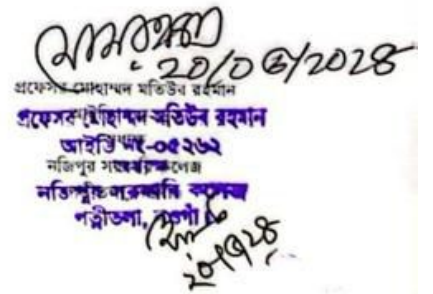 ২০/০৫/২০২৪
প্রফেসর মোহাম্মদ মতিউর রহমান
প্রফেসর মোহাম্মদ মতিউর রহমান
আইডি নং-০৫২৬২
নজিপুর সরকারি কলেজ
নজিপুর সরকারি কলেজ
পত্নীতলা, নওগাঁ।